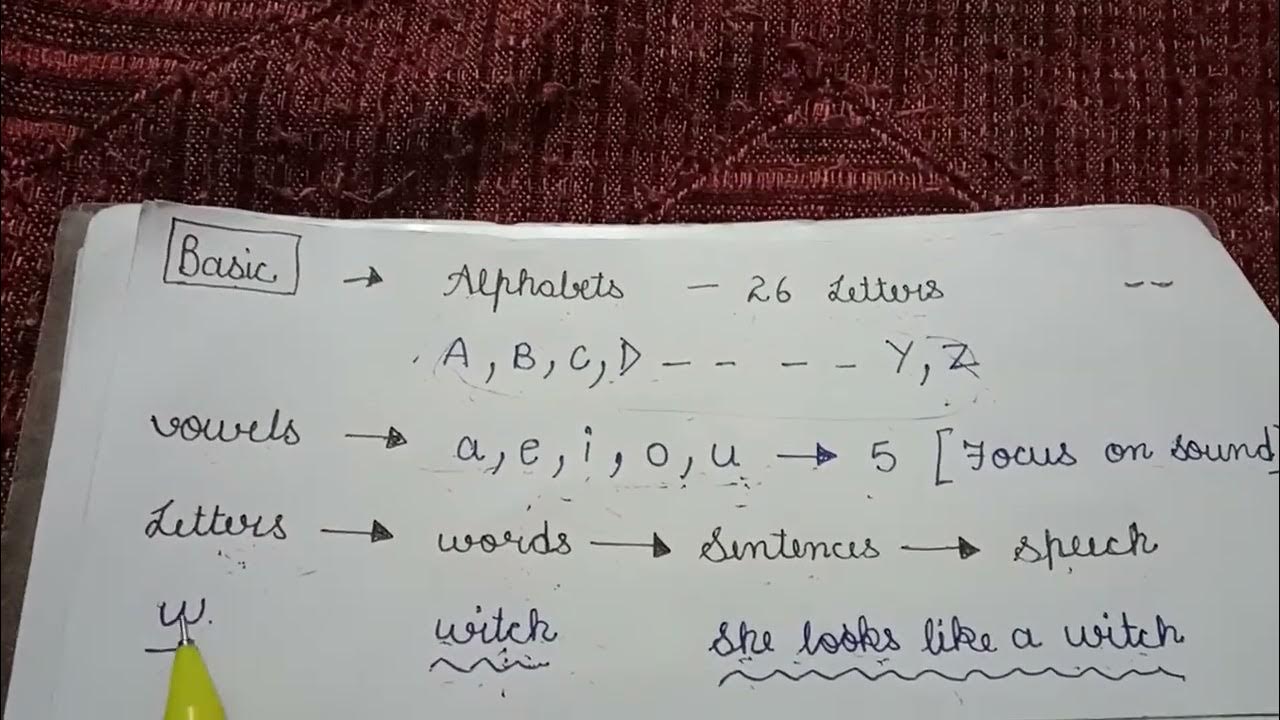 Basic → Alphabets - 26 Letters --
A, B, C, D - - - - Y, Z
vowels → a, e, i, o, u → 5 [Focus on sound]
Letters → words → Sentences → speech
w. witch she looks like a witch